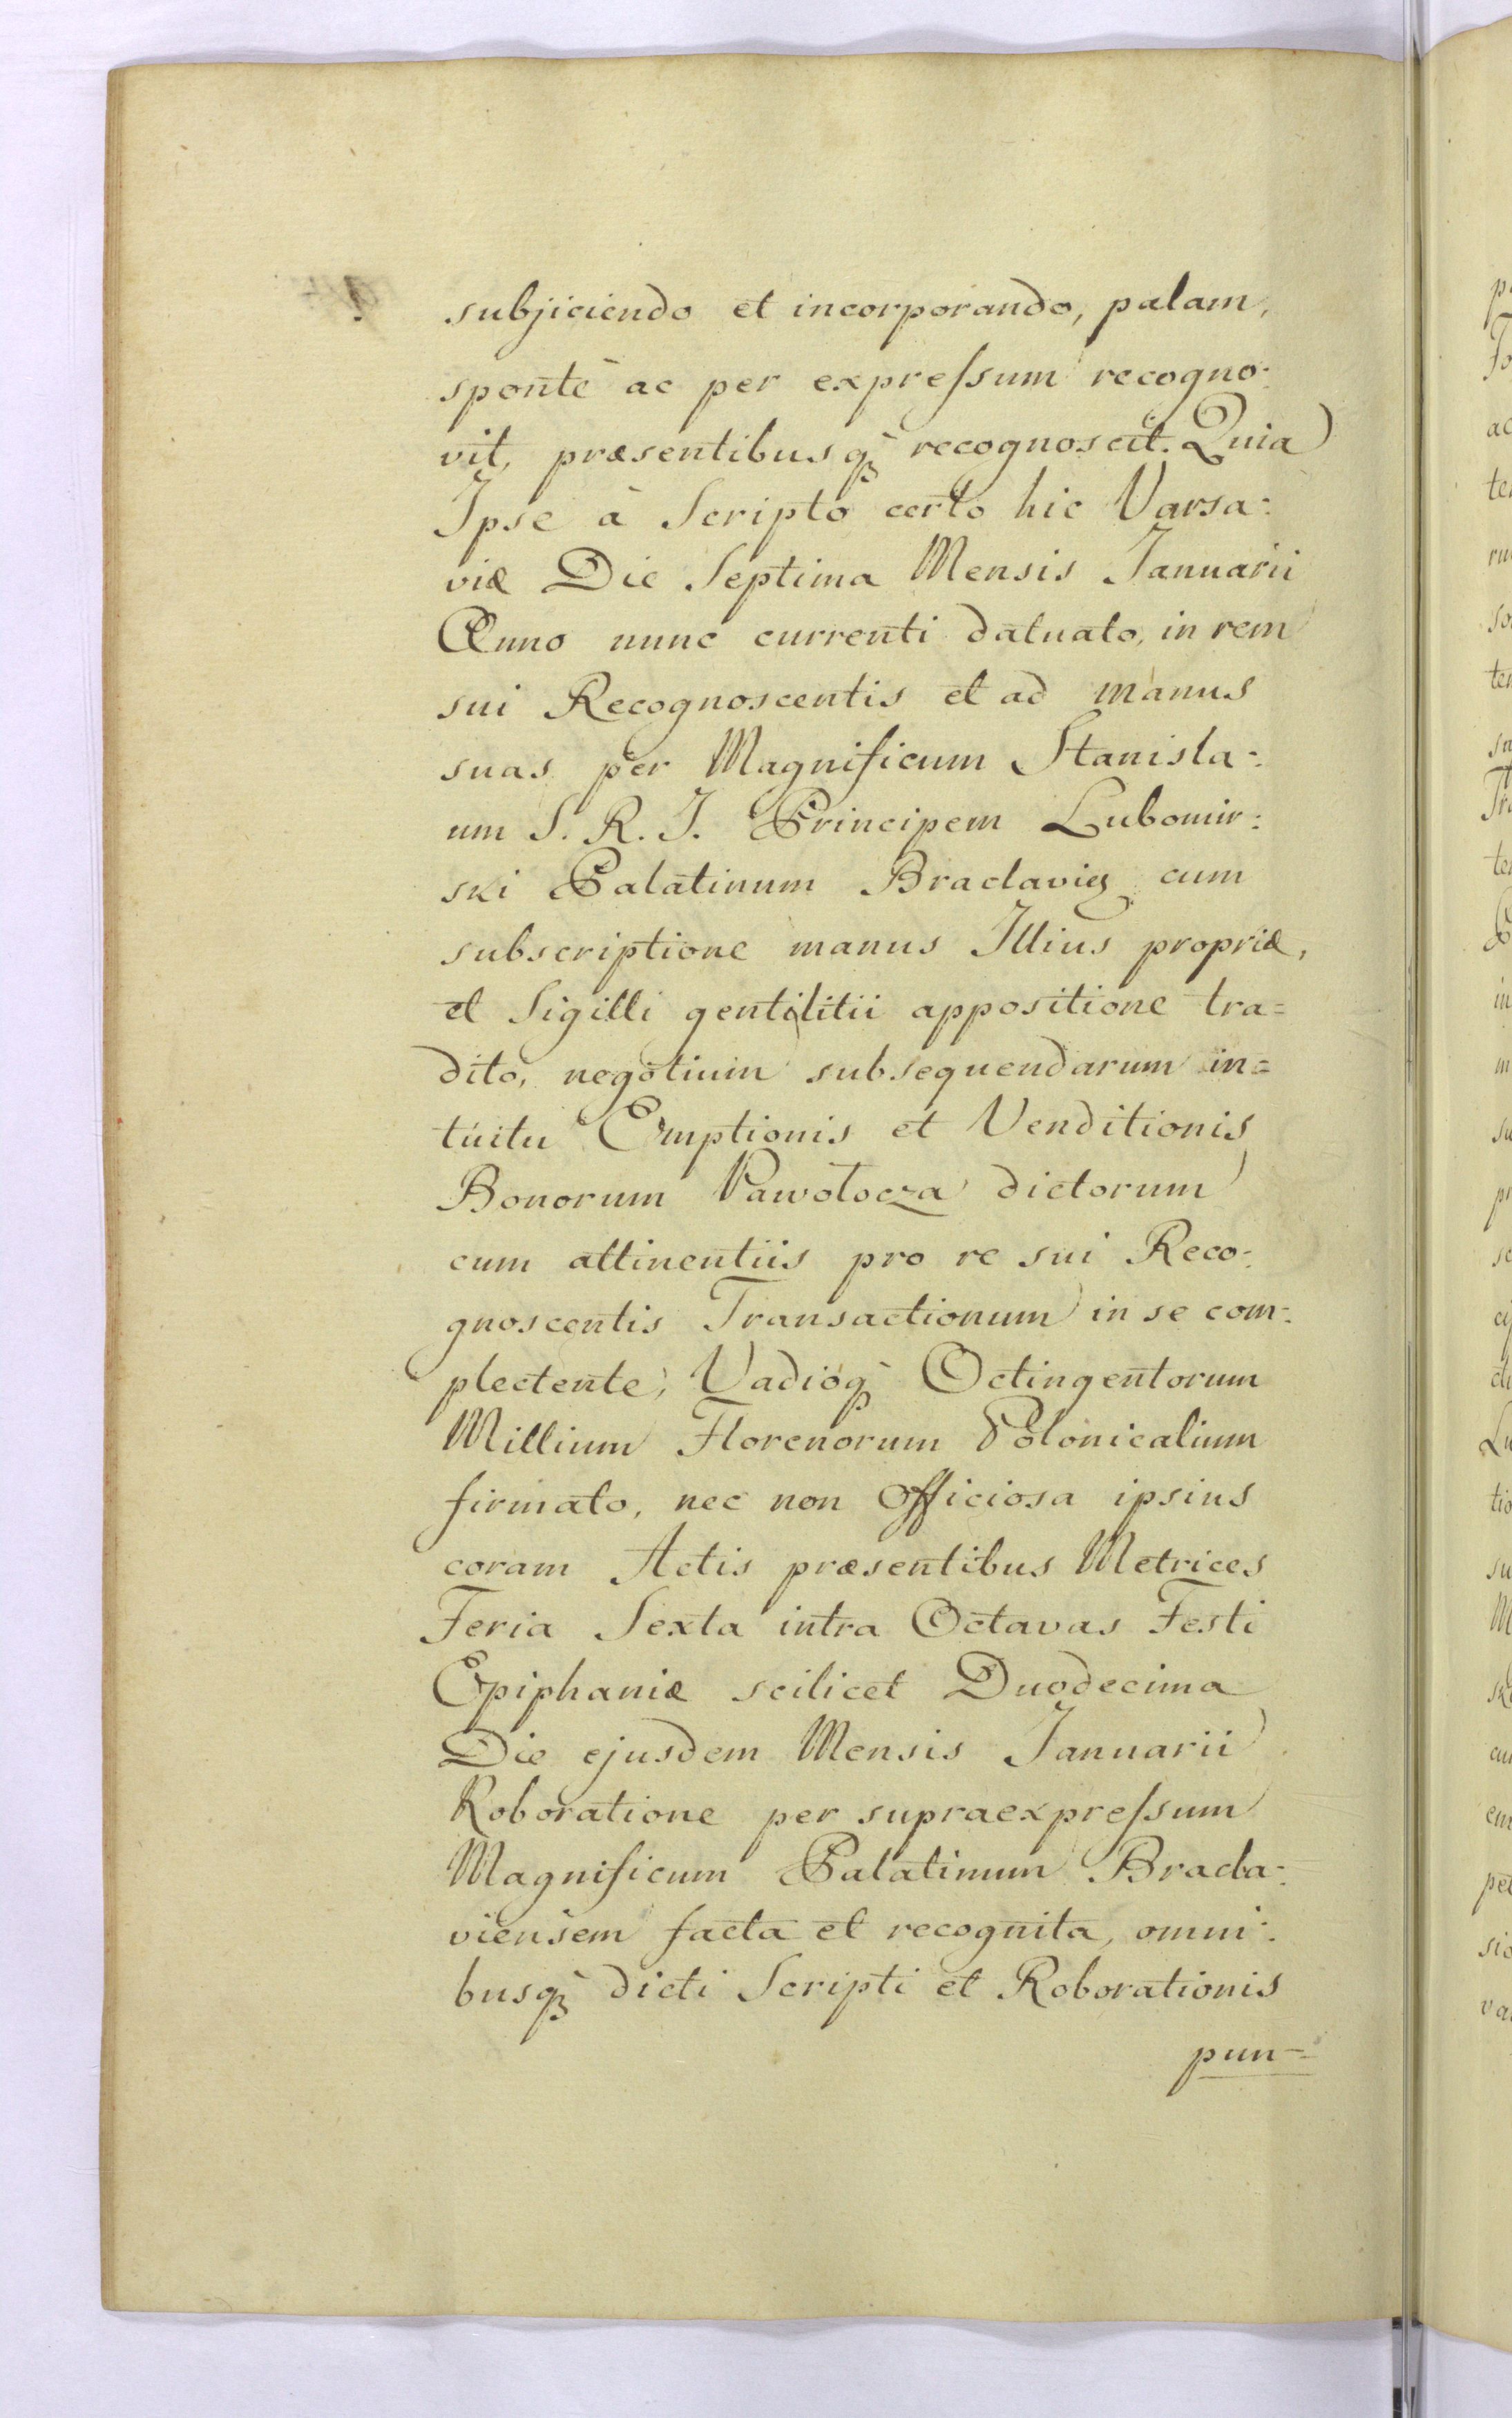 subjiciendo et incorporando, palam,
spontè ac per expreſsum recogno:
vit, præsentibusq̀ recognoscit. Quia
Ipse à Scripto certo hic Varsa:
viæ Die Septima Mensis Januarii
Anno nunc currenti datuato, in rem
sui Recognoscentis et ad manus
suas per Magnificum Stanisla:
um S. R. I. Principem Lubomir:
ski Palatinum Braclavięs cum
subscriptione manus Illius propriæ,
et Sigilli gentilitii appositione tra=
dito, negotium subsequendarum in=
tuitu Emptionis et Venditionis
Bonorum Pawołocza dictorum
cum attinentiis pro re sui Reco:
gnoscentis Transactionum in se com:
plectente, Vadioq̀ Octingentorum
Millium Florenorum Polonicalium
firmato, nec non Officiosa ipsius
coram Actis præsentibus Metrices
Feria Sexta intra Octavas Festi
Epiphaniæ scilicet Duodecima
Die ejusdem Mensis Januarii
Roboratione per supraexpreſsum
Magnificum Palatinum Bracla:
viensem facta et recognita, omni:
busq̀ dicti Scripti et Roborationis
pun=